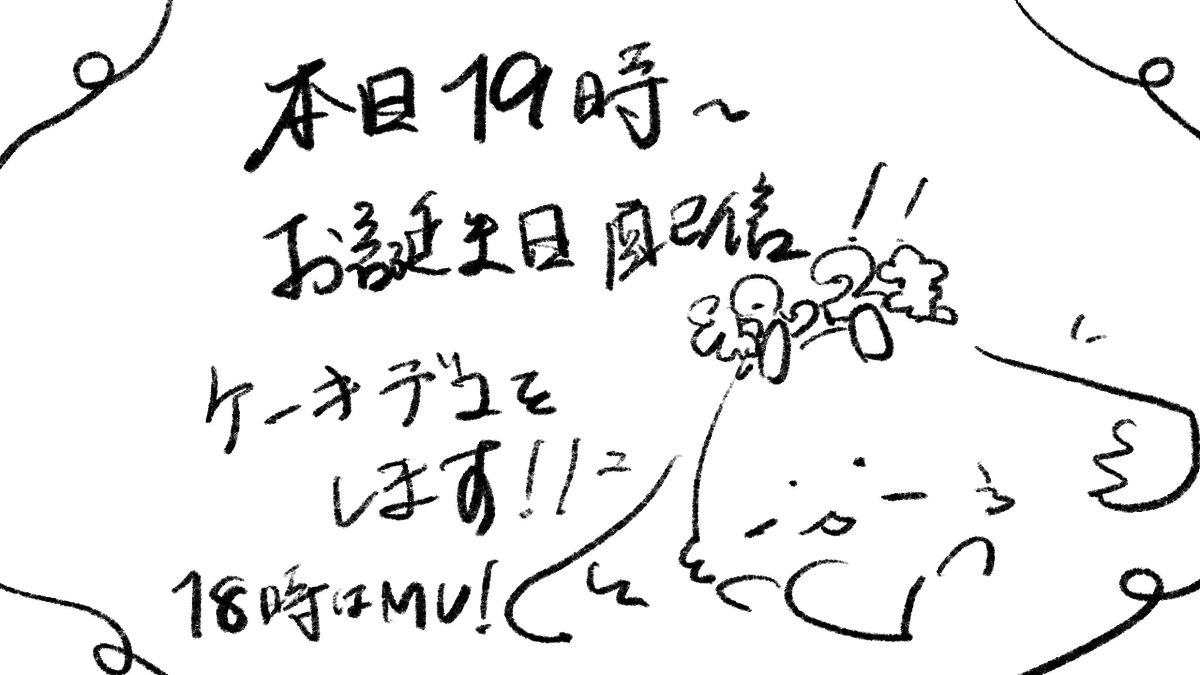 本日19時～
お誕生日配信!!
ケーキデコを
します!!
18時はMV!